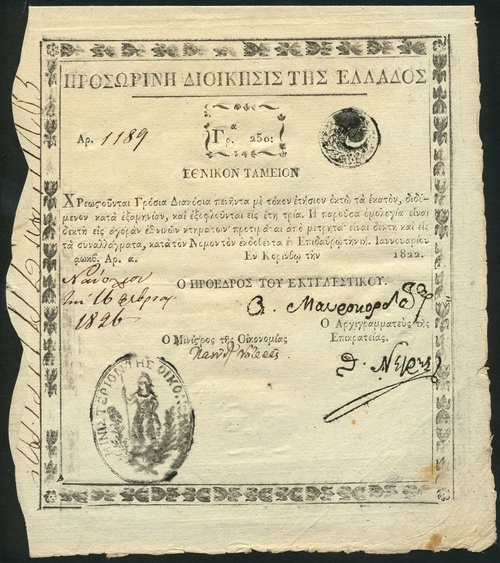 ΠΡΟΣΩΡΙΝΗ ΔΙΟΙΚΗΣΙΣ ΤΗΣ ΕΛΛΑΔΟΣ
Αρ. 1189
Γρ.α 250:
ΕΘΝΙΚΟΝ ΤΑΜΕΙΟΝ
Χρεωςοῦνται Γρόσια Διακόσια πενῆντα μὲ τόκον ἐτήσιον ὀκτὼ τὰ ἑκατὸν, διδό-
μενον κατὰ ἑξαμηνίαν, καὶ ἐξοφλοῦνται εἰς ἔτη τρία. Η παροῦσα ὁμολογία εἶναι
δεκτὴ εἰς ἀγορὰν ἐθνικῶν κτημάτων προτιμᾶται ἀπὸ μετρητὰ εἶναι δεκτὴ καὶ εἰς
τὰ συναλλάγματα, κατὰ τὸν Νόμον τὸν ἐκδοθέντα ἐν Επιδαύρῳ τὴν ή. Ιαννουαρίου
αωκβ. Αρ. α. Εν Κορίνθῳ τὴν 1822.
Ναύπλιον
τη 16
1826
Ο ΠΡΟΕΔΡΟΣ ΤΟΥ ΕΚΤΕΛΕΣΤΙΚΟΥ.
Α. Μαυροκορδάτος
Ο Μινίςρος τῆς Οἰκονομίας
Ο Αρχιγραμματεὺς τῆς
Επικρατείας.
Θ. Νέγρης
ΜΙΝΙΣΤΕΡΙΟΝ ΤΗΣ ΟΙΚΟΝ